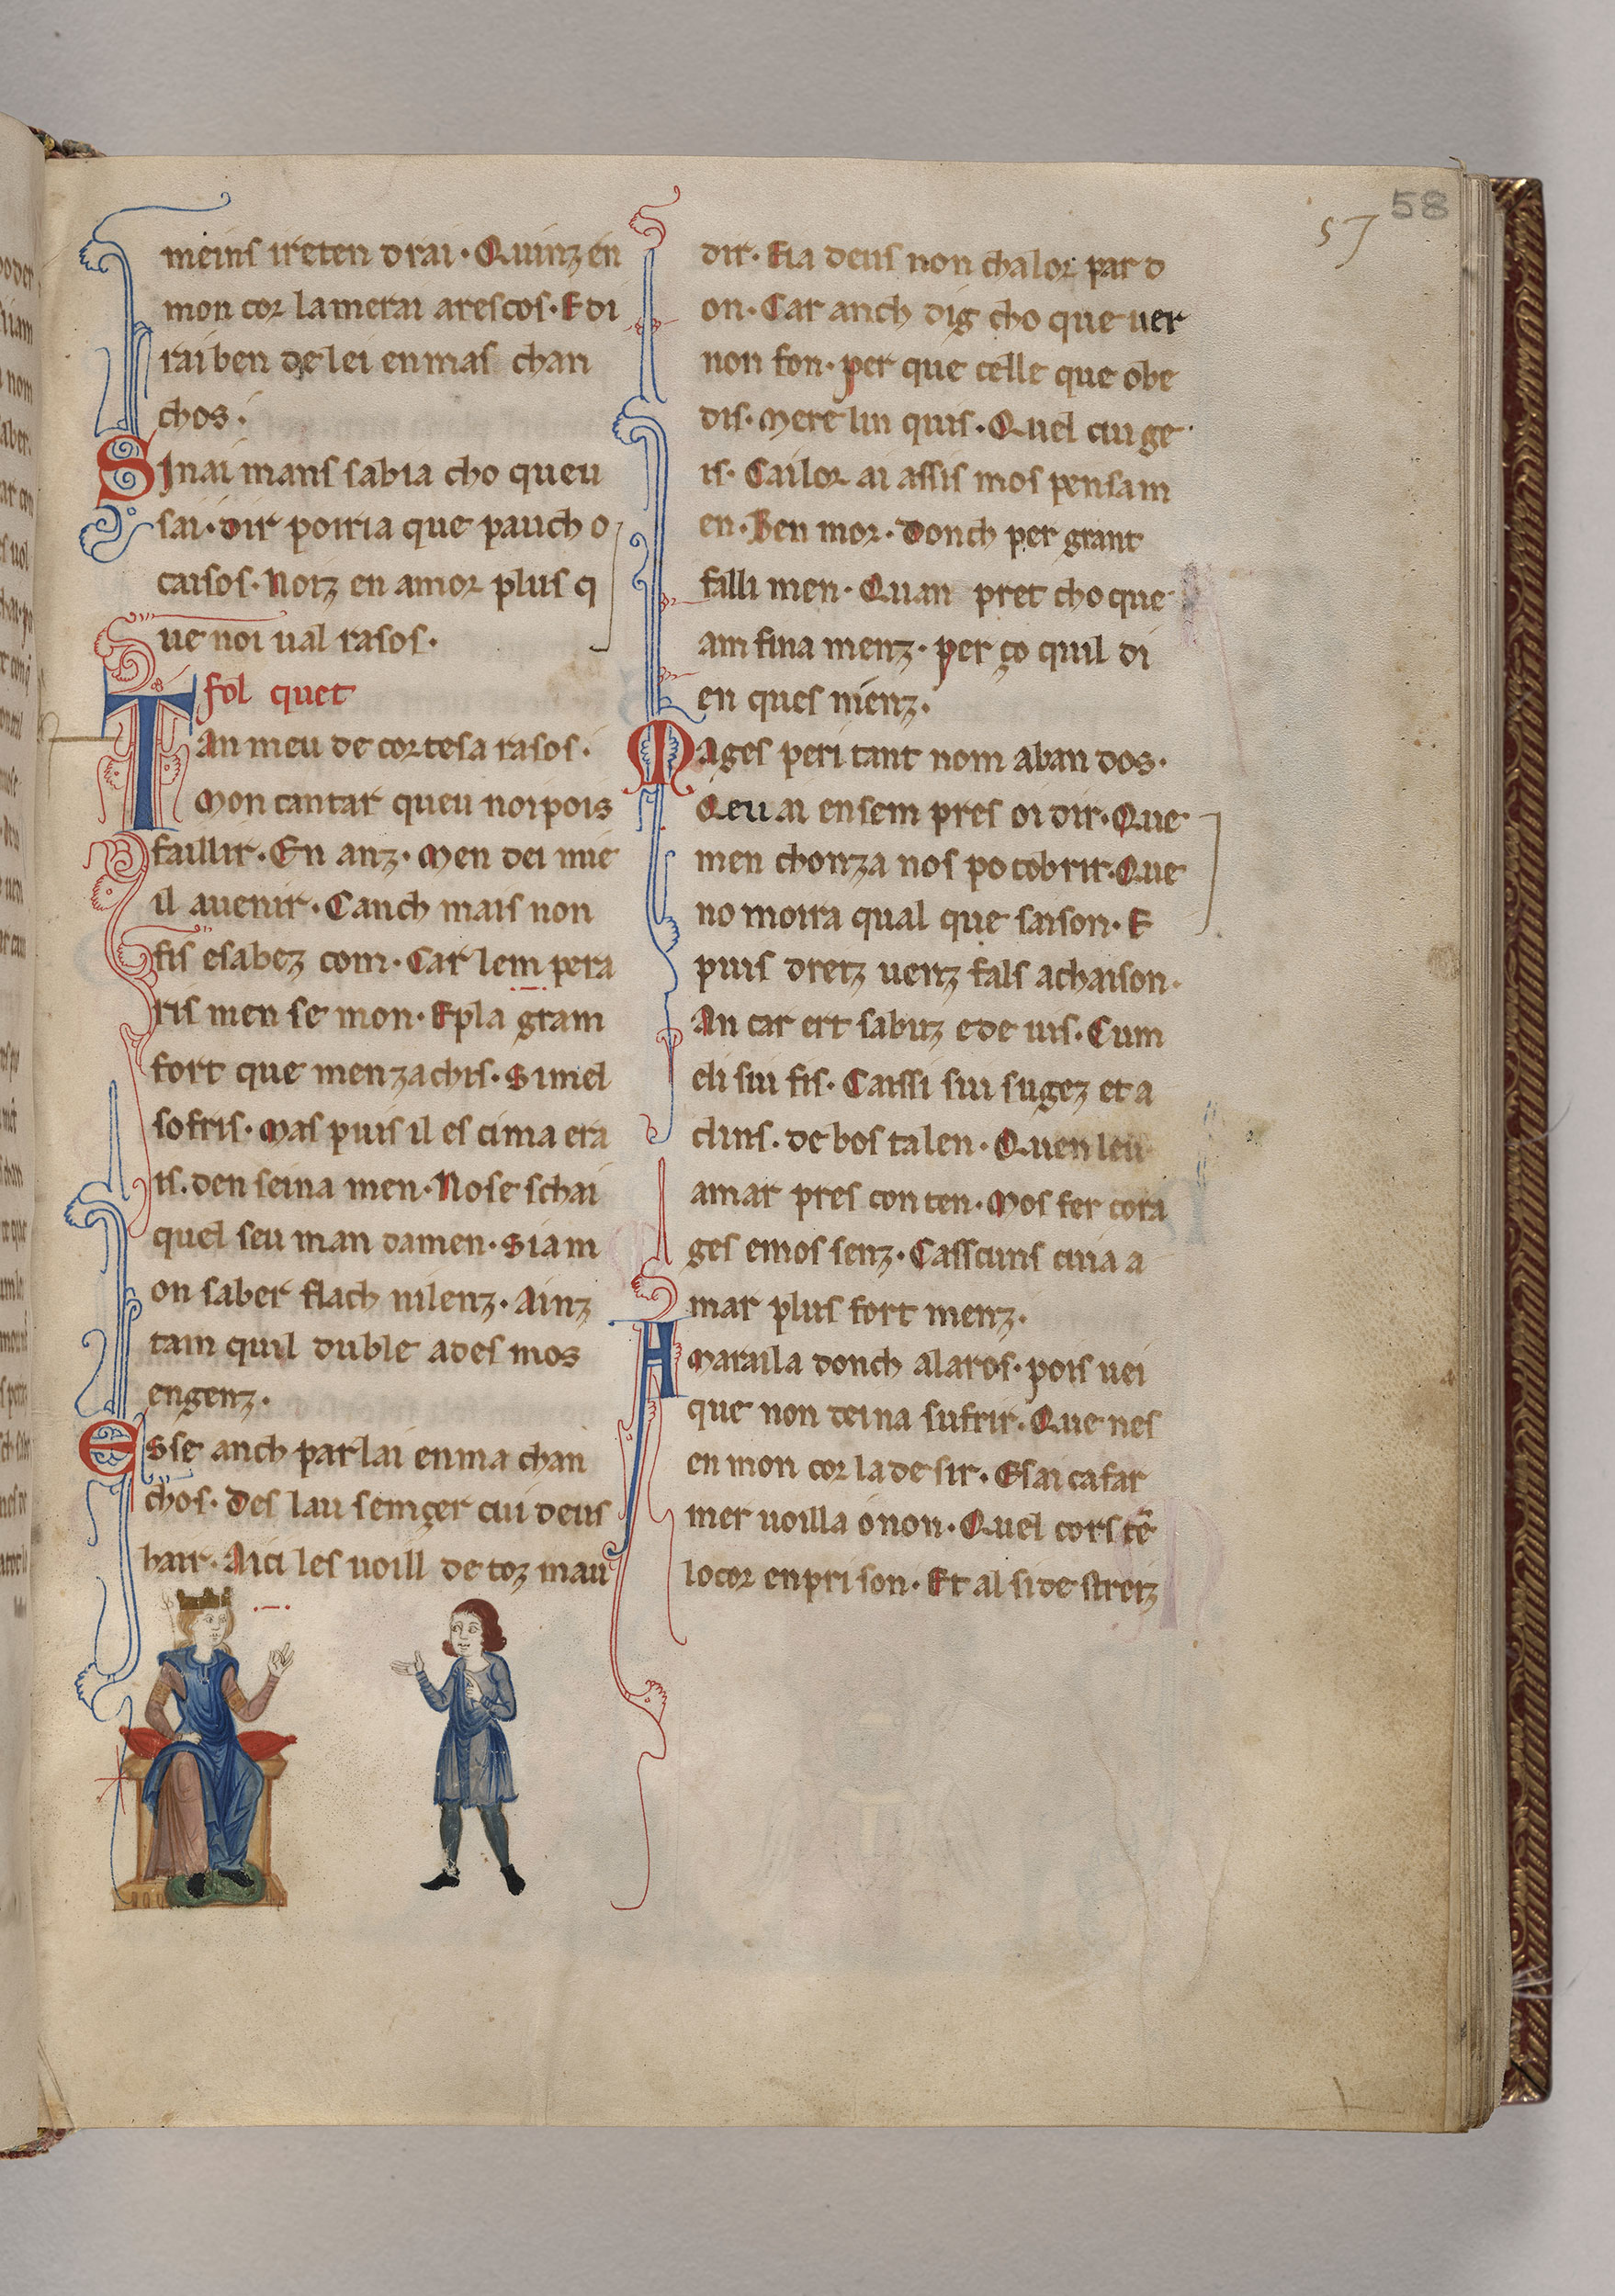 58
57
meins ireten drai · Quinz en
mon cor lamerai arescos · E di
rai ben de lei en mas chan
chos ·
Sinai mans sabia cho queu
sai · dir poiria que pauch o
caisos · Notz en amor plus q
ue noi ual rasos ·
fol quet
Tan meu de cortesa rasos ·
Mon cantar queu noi pois
faillir · En anz · Men dei mie
il auenir · Canch mais non
fis esabez com · Car lem pera
ris men se mon · Epla gram
fort que menzachis · Simel
sofris · Mas puis il es cima era
is · den seina men · No se schai
quel seu man damen · Siam
on saber flach nilenz · Ainz
tam quil duble ades mos
engenz ·
Esse anch parlai en ma chan
chos · Des lau semger cui deus
hair · Aici les uoill de toz mau
dir · Eia deus non chalor par d
on · Car anch dig cho que uer
non fon · per que celle que obe
dis · Mere lin quis · Quel cuige
is · Cailor ai assis mos pensam
en · Ben mor · donch per grant
falli men · Quan pret cho que
am fina menz · per ço quil di
en ques nienz ·
Mages peri tant nom aban dos ·
Qeu ai ensem pres oi dir · Que
men chonza nos po cobrir · Que
no moira qual que saison · E
puis dretz uenz fals achaison ·
An car ert sabuz e de uis · Cum
eli sui fis · Caissi sui sugez et a
clins · de bos talen · Quen leu
amar pres con ten · Mos fer cora
ges e mos senz · Casscuns cuia a
mar plus fort menz ·
Amaraila donch alaros · pois uei
que non teina sufrir · Que nes
en mon cor la de sir · Esai ca far
mer uoilla o non · Quel cors tẽ
lo cor en pri son · Et al si de stretz